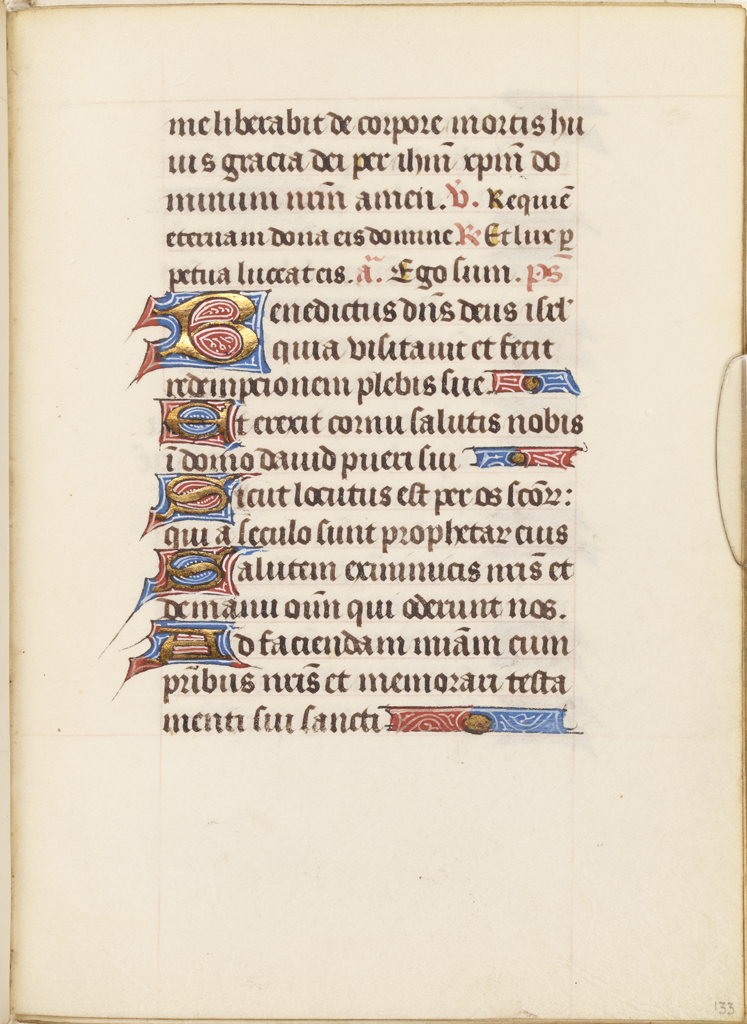 me liberabit de corpore mortis hu
ius gracia dei per ihm̄ xpm̄ do
minum nrm̄ amen. V̇. Requiē
eternam dona eis domine R Et lux ꝑ
petua luceat eis. aᷓ. Ego sum. ps̄
Benedictus dn̄s deus isrl'
quia visitauit et fecit
redempcionem plebis sue
Et erexit cornu salutis nobis
ī domo dauid pueri sui
Sicut locutus est per os scōꝝ:
qui a seculo sunt prophetar eius
Salutem ex inimicis nrīs et
de manu oīm qui oderunt nos.
Ad faciendam miām cum
prībus nrīs et memorari testa
menti sui sancti
133